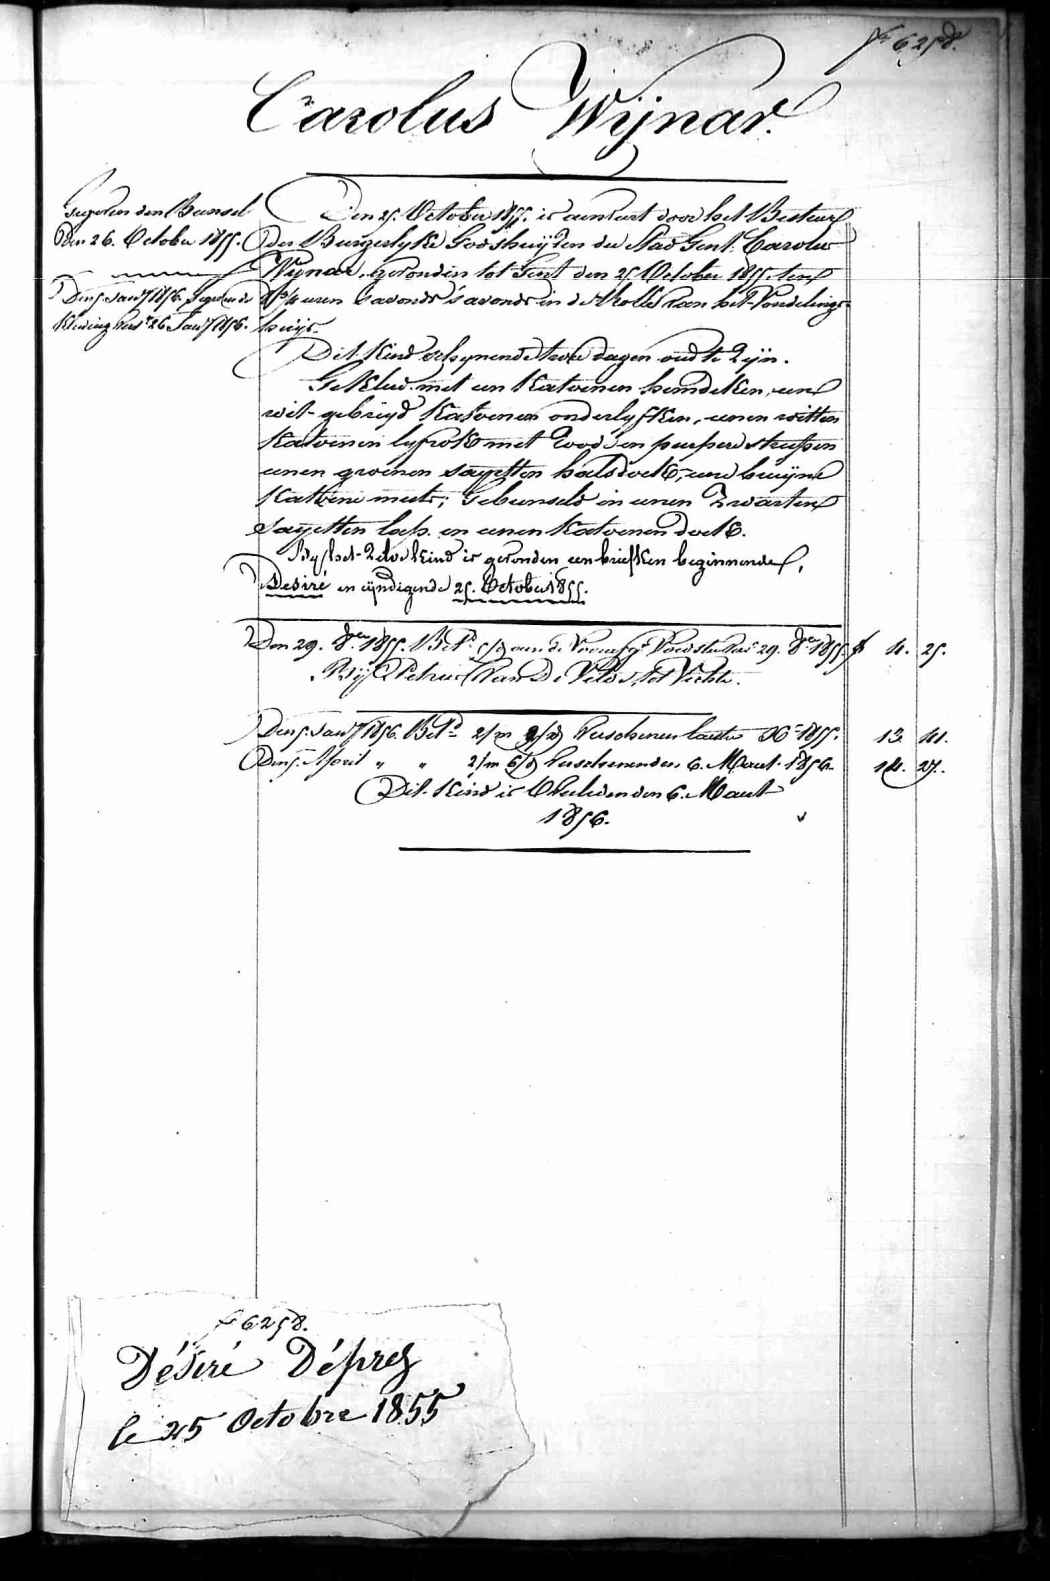 Nº 6258.
Carolus Wijnar.
Gegeven den Bunsel
Den 26. October 1855.
Den 5. Janry 1856. Gegeven de
Kleeding vers. 26. Janry 1856.
Den 25. October 1855. is aenveert door het Bestuer
der Burgerlyke Godshuyzen der Stad Gent: Carolus
Wijnar, gevonden tot Gent den 25. October 1855. ten
uren 's avonds in de Rolle van het Vondelings
huijs.
Dit Kind schynende twee dagen oud te Zyn.
Gekleed met een Katoenen hemdeken, een
wit gebreyd Katoenen onderlyfken, eenen witten
Katoenen lyfrok met rood en purpere streepen
eenen groenen sayetten halsdoek, eene bruyne
Katoene muts; Gebunseld in eenen Zwarten
Sayetten lap. en eenen Katoenen doek.
By het Zelve Kind is gevonden een briefken beginnende,
Desiré en eyndigende 25. October 1855.
Den 29. 8ber 1855. Betd aen de Voedster 29. 8ber 1855. f 4. 25.
Bij Petrus Van De Velde, tot Vichte.
Den 5. Janry 1856. Betd 2/m Verschenen laeste Xber 1855. 13. 41.
Den 5. April " " 2/m 6/d Verschenen den 6. Maert 1856. 14. 27.
Dit Kind is Overleden den 6. Maert
1856.
Nº 6258.
Désiré Déprez
le 25 Octobre 1855